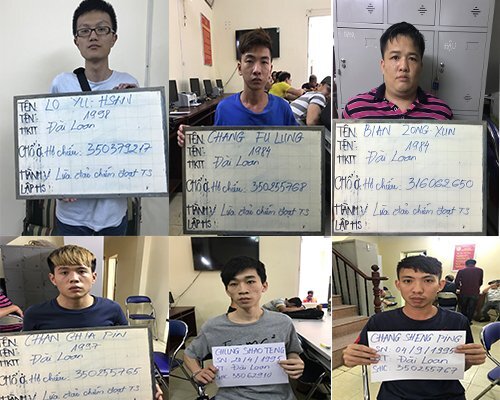 TÊN: LO YU-HSAN
TÊN: 1998
HKTT Đài Loan
CHỖ Ở: Hộ chiếu: 350379217
HÀNH V: Lừa đảo chiếm đoạt TS
LẬP HS:
TÊN: CHANG FU LUNG
TÊN: 1984
HKTT Đài Loan
CHỖ Ở: Hộ chiếu: 350255768
HÀNH V: Lừa đảo chiếm đoạt TS
LẬP HS:
TÊN: BIAN ZONG XUN
TÊN: 1984
HKTT Đài Loan
CHỖ Ở: Hộ chiếu: 316062650
HÀNH V: Lừa đảo chiếm đoạt TS
LẬP HS:
TÊN: CHAN CHIA PIN
TÊN: 1997
Đài Loan
CHỖ Ở: Hộ chiếu: 350255765
HÀNH V: Lừa đảo chiếm đoạt TS
CHUNG SHAO TENG
Đài Loan
CHANG SHENG PING
SN 04/9/1995
Đài Loan
350255767